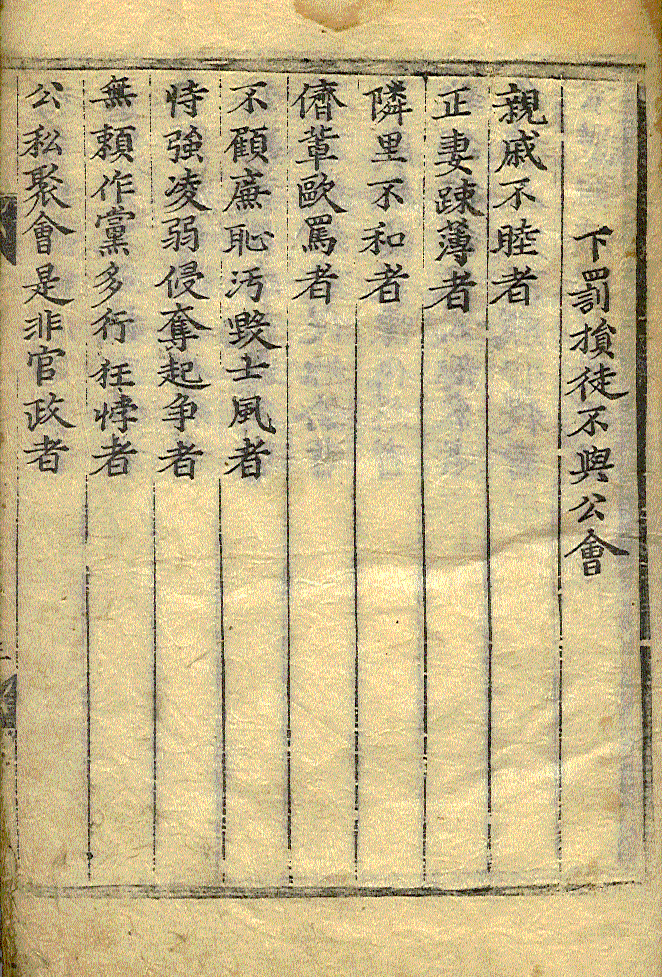 下罰損徒不與公會
親戚不睦者
正妻踈薄者
隣里不和者
儕軰歐罵者
不顧廉恥汚毀士風者
恃強凌弱侵奪起争者
無頼作黨多行狂悖者
公私聚會是非官政者